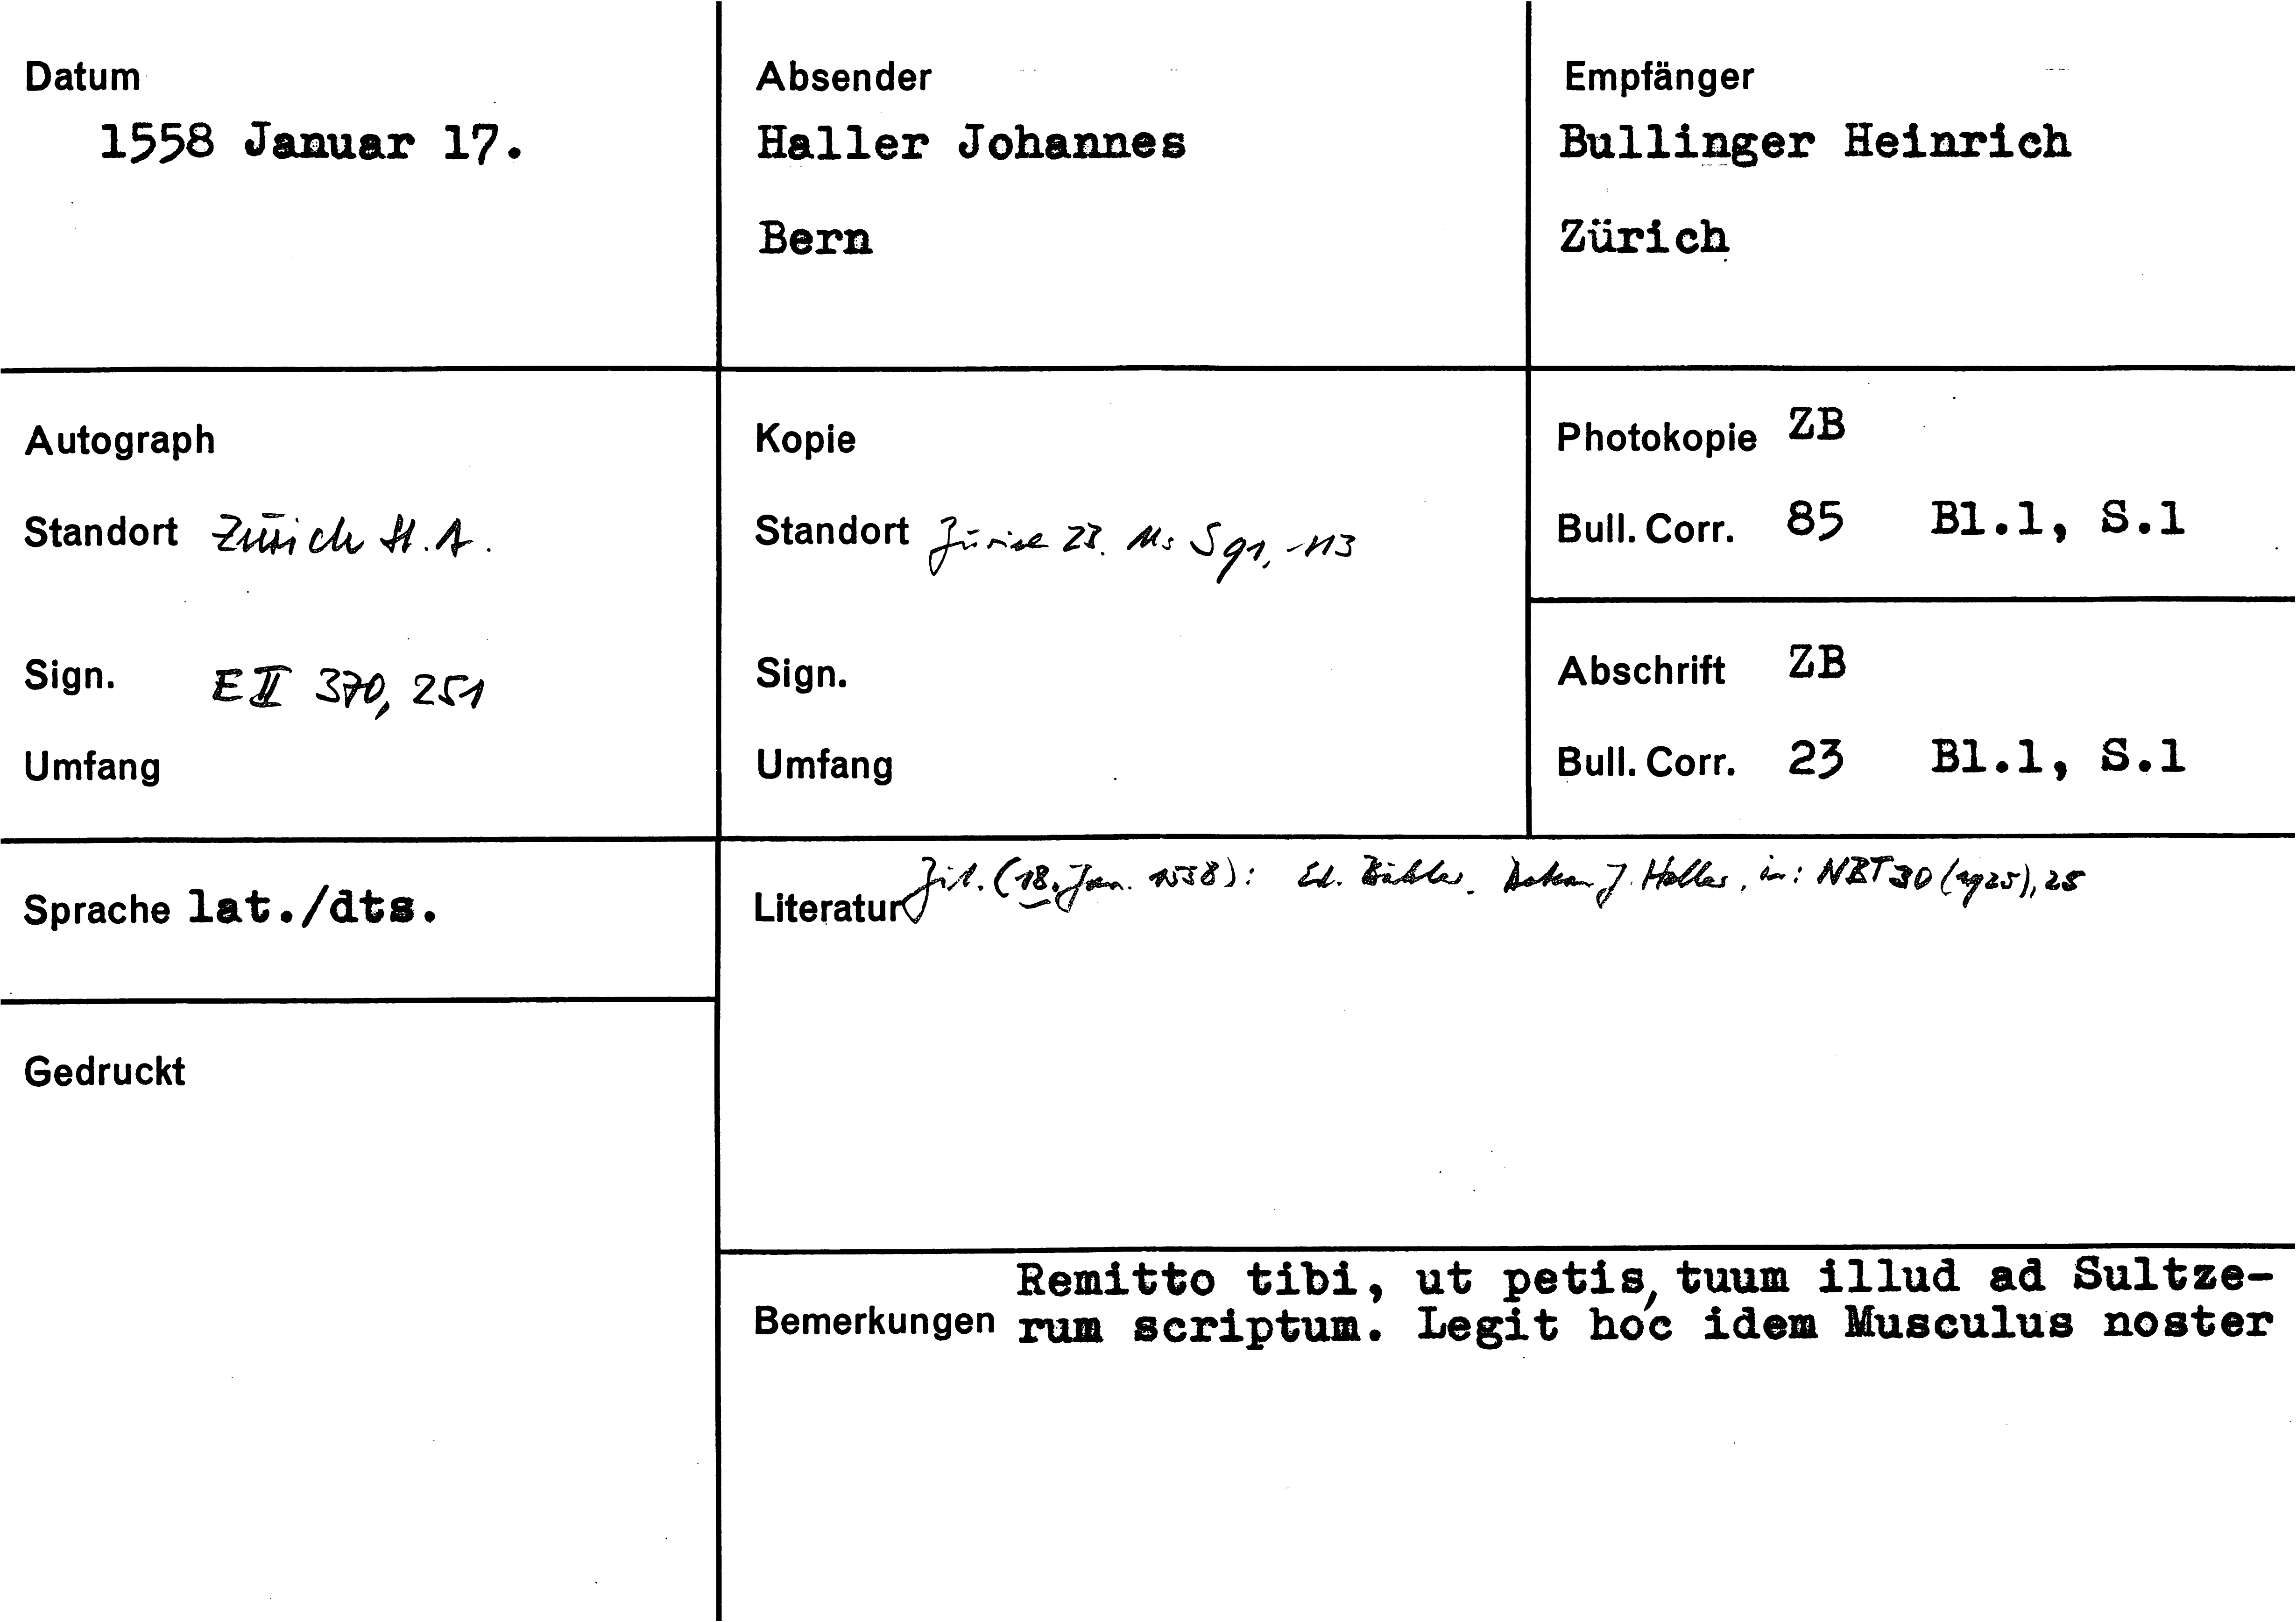 Datum
1558 Januar 17.
Absender
Haller Johannes
Bern
Empfänger
Bullinger Heinrich
Zürich
Autograph
Standort Zürich St.A.
Sign. E II 370, 251
Umfang
Kopie
Standort Zürich ZB. Ms S 91, 113
Sign.
Umfang
Photokopie ZB
Bull. Corr. 85 Bl.1, S.1
Abschrift ZB
Bull. Corr. 23 Bl.1, S.1
Sprache lat./dts.
Gedruckt
Literatur Zit. (18. Jan. 1558): Ed. Bähler, Dekan J. Haller, in: NBT 30 (1925), 28
Bemerkungen Remitto tibi, ut petis, tuum illud ad Sultze-
rum scriptum. Legit hoc idem Musculus noster